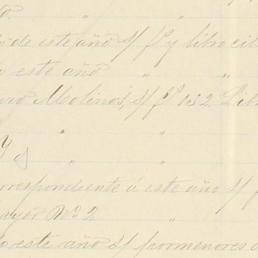 to.
de este año s/ fº y libro cit
este año " "
Molinos, s/ fº 152 Lib
" "
y
correspondiente á este año s/ f
mayor Nº 2 "
este año s/ pormenores